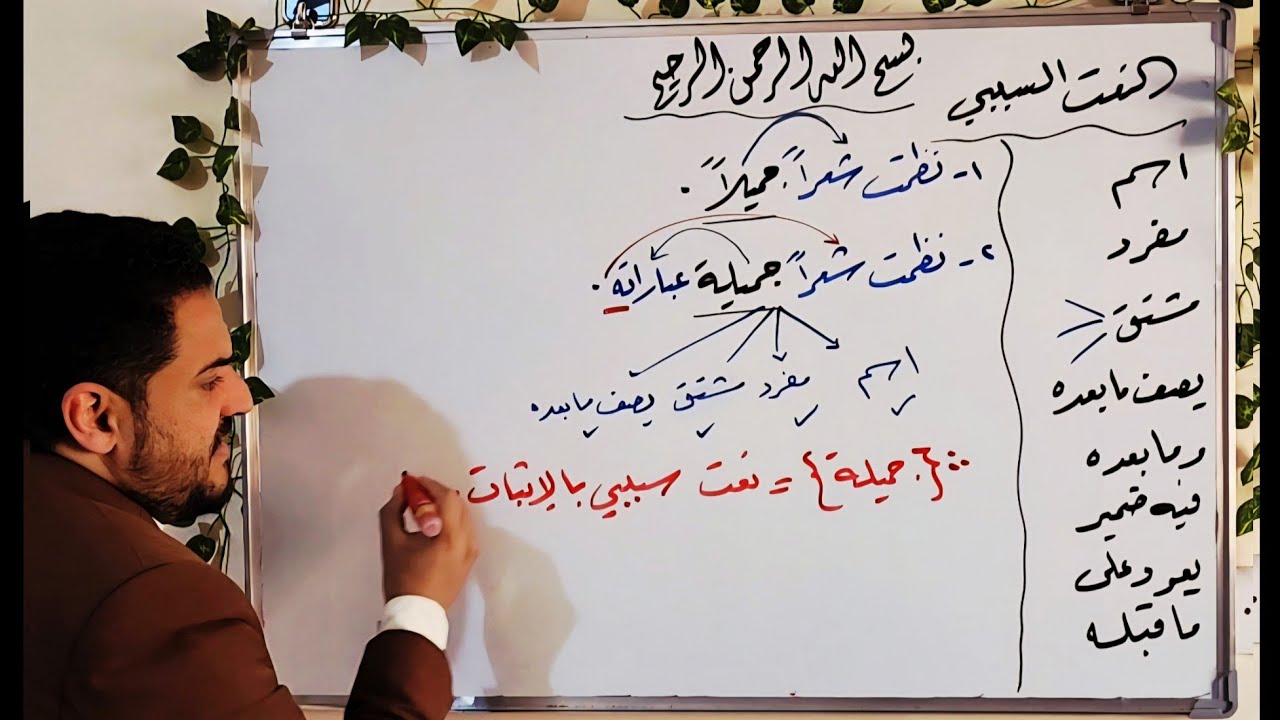 بسم الله الرحمن الرحيم
النعت السببي
اسم
مفرد
مشتق
يصف ما بعده
وما بعده
فيه ضمير
يعود على
ما قبله
١- نظمت شعراً جميلاً.
٢- نظمت شعراً جميلة عباراته.
اسم مفرد مشتق يصف ما بعده
∴ {جميلة} = نعت سببي بالإثبات.